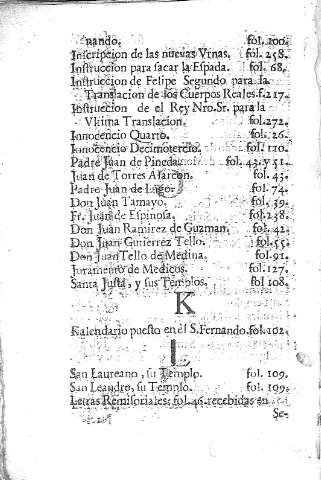 nando. fol. 100.
Inscripcion de las nuevas Vrnas. fol. 258.
Instruccion para sacar la Espada. fol. 68.
Instruccion de Felipe Segundo para la
Translacion de los Cuerpos Reales. f. 217.
Instruccion de el Rey Nro. Sr. para la
Vltima Translacion. fol. 272.
Innocencio Quarto. fol. 26.
Innocencio Decimotercio. fol. 120.
Padre Juan de Pineda. fol. 43. y 51.
Juan de Torres Alarcon. fol. 43.
Padre Juan de Lugo. fol. 74.
Don Juan Tamayo. fol. 39.
Fr. Juan de Espinosa. fol. 238.
Don Juan Ramirez de Guzman. fol. 42.
Don Juan Gutierrez Tello. fol. 55.
Don Juan Tello de Medina. fol. 91.
Juramento de Medicos. fol. 127.
Santa Justa, y sus Templos. fol 108.
K
Kalendario puesto en el S. Fernando. fol. 102.
L
San Laureano, su Templo. fol. 109.
San Leandro, su Templo. fol. 109.
Letras Remisoriales: fol. 46. recebidas en
Se-